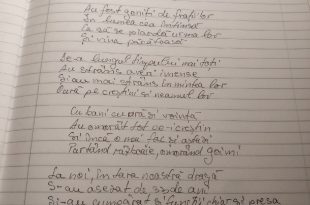 Au fost goniți de frații lor
În lumea cea întinsă
Ca să se piardă urma lor
Și vina păcătoasă
De-a lungul timpului mai toți
Au strâns averi imense
Și-au mai strâns în mintea lor
Ură pe creștini și neamul lor
Cu bani cu ură și voință
Au omorât tot pe creștin
Și încă o mai fac și astăzi
Purtând războaie, omorând goimi
La noi, în țara noastră dragă
S-au așezat de sute de ani
Și-au cumpărat și funcții chiar și presa